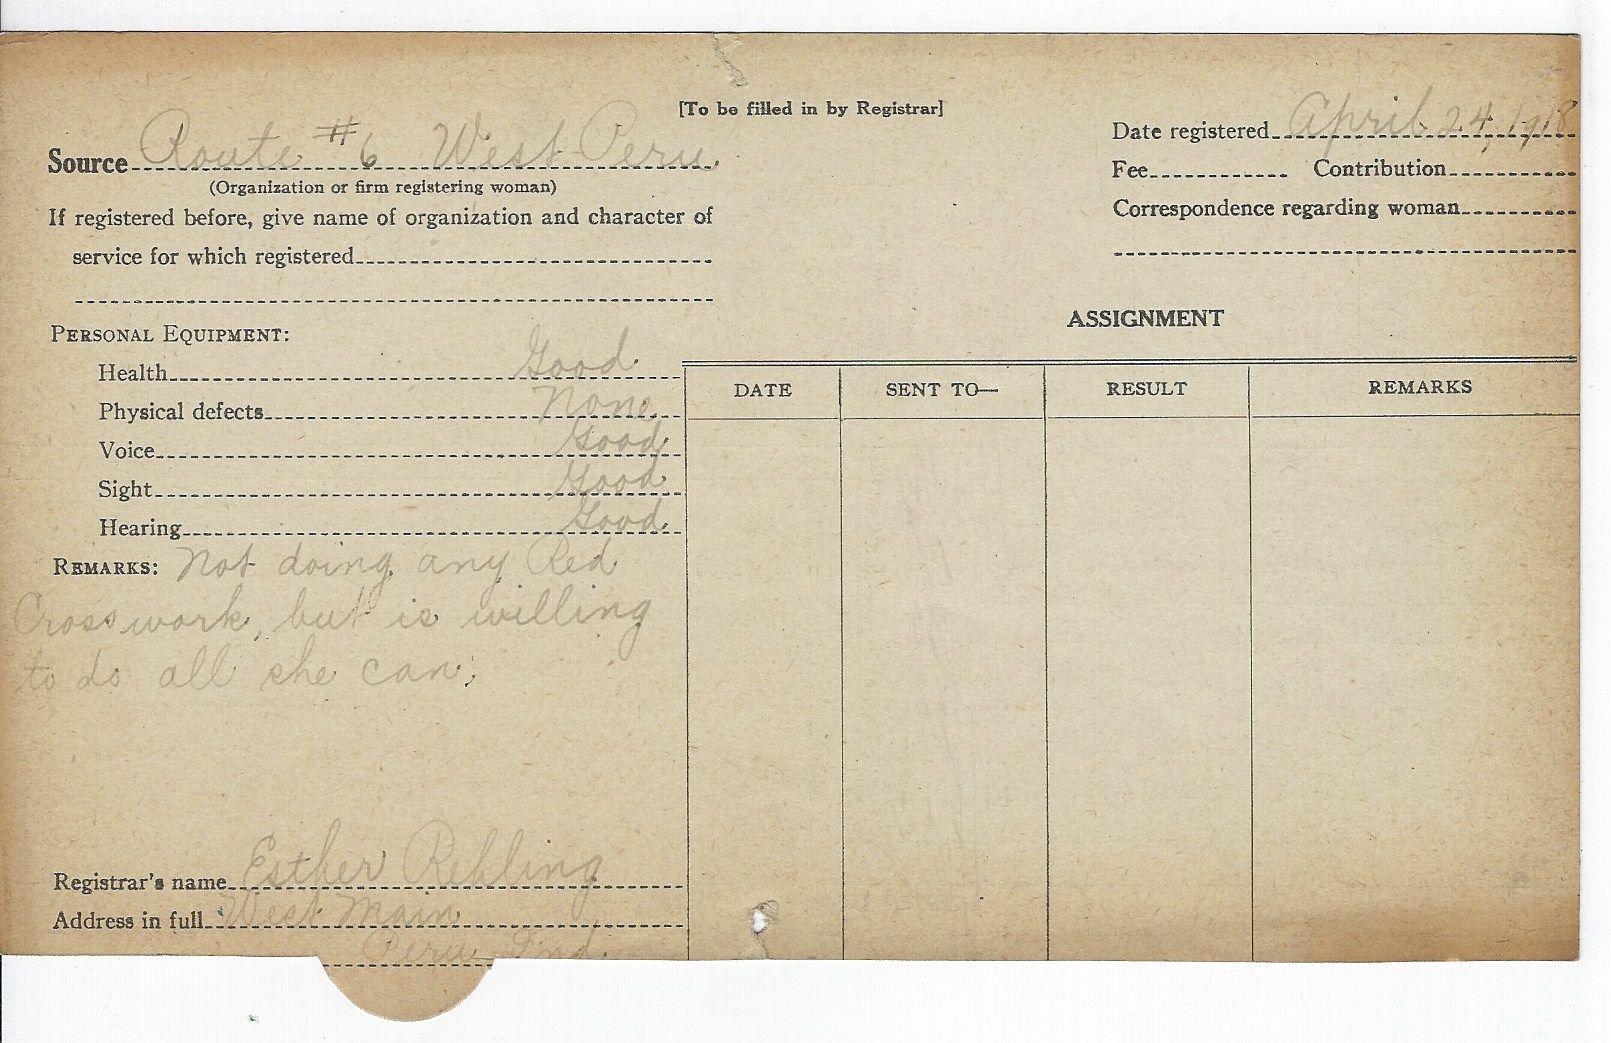 [To be filled in by Registrar]
Source Route #6 West Peru.
(Organization or firm registering woman)
If registered before, give name of organization and character of
service for which registered
Date registered April 24, 1918
Fee Contribution
Correspondence regarding woman
PERSONAL EQUIPMENT:
Health Good
Physical defects None
Voice Good
Sight Good
Hearing Good
REMARKS: Not doing any Red
Cross work, but is willing
to do all she can.
Registrar's name Esther Rehling
Address in full West Main
Peru Ind.
ASSIGNMENT
DATE SENT TO— RESULT REMARKS